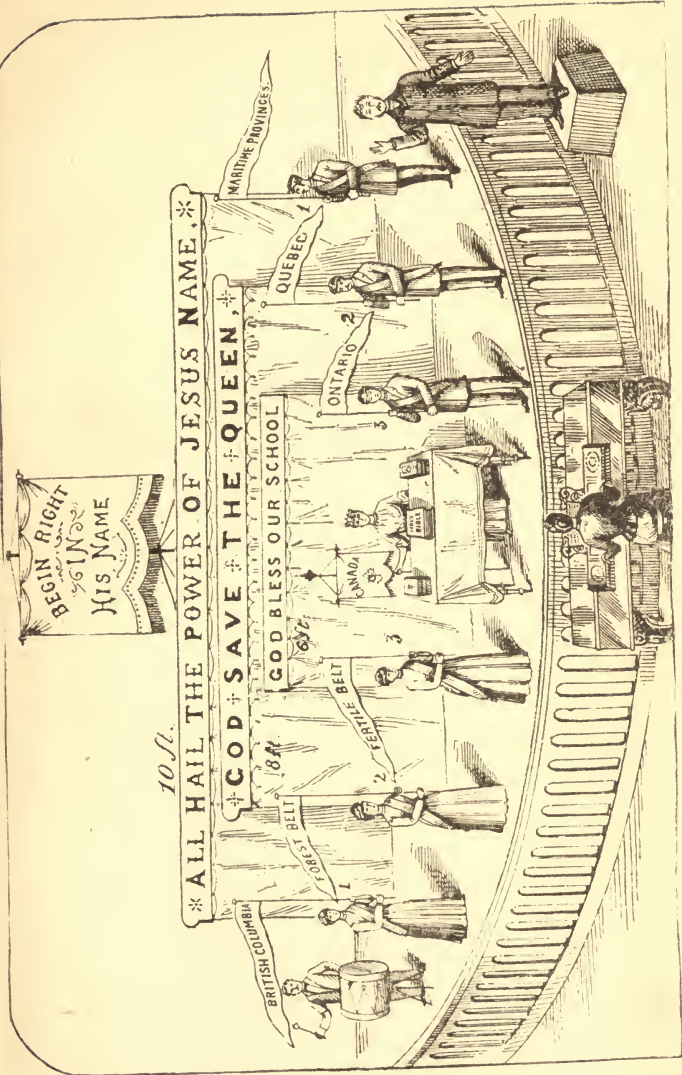 BEGIN RIGHT
IN
HIS NAME
10 ft.
ALL HAIL THE POWER OF JESUS NAME,
GOD SAVE THE QUEEN,
8ft
GOD BLESS OUR SCHOOL
6ft.
BRITISH COLUMBIA
FOREST BELT
FERTILE BELT
CANADA
ONTARIO
QUEBEC
MARITIME PROVINCES.
1
2
3
3
2
1
BIBLE